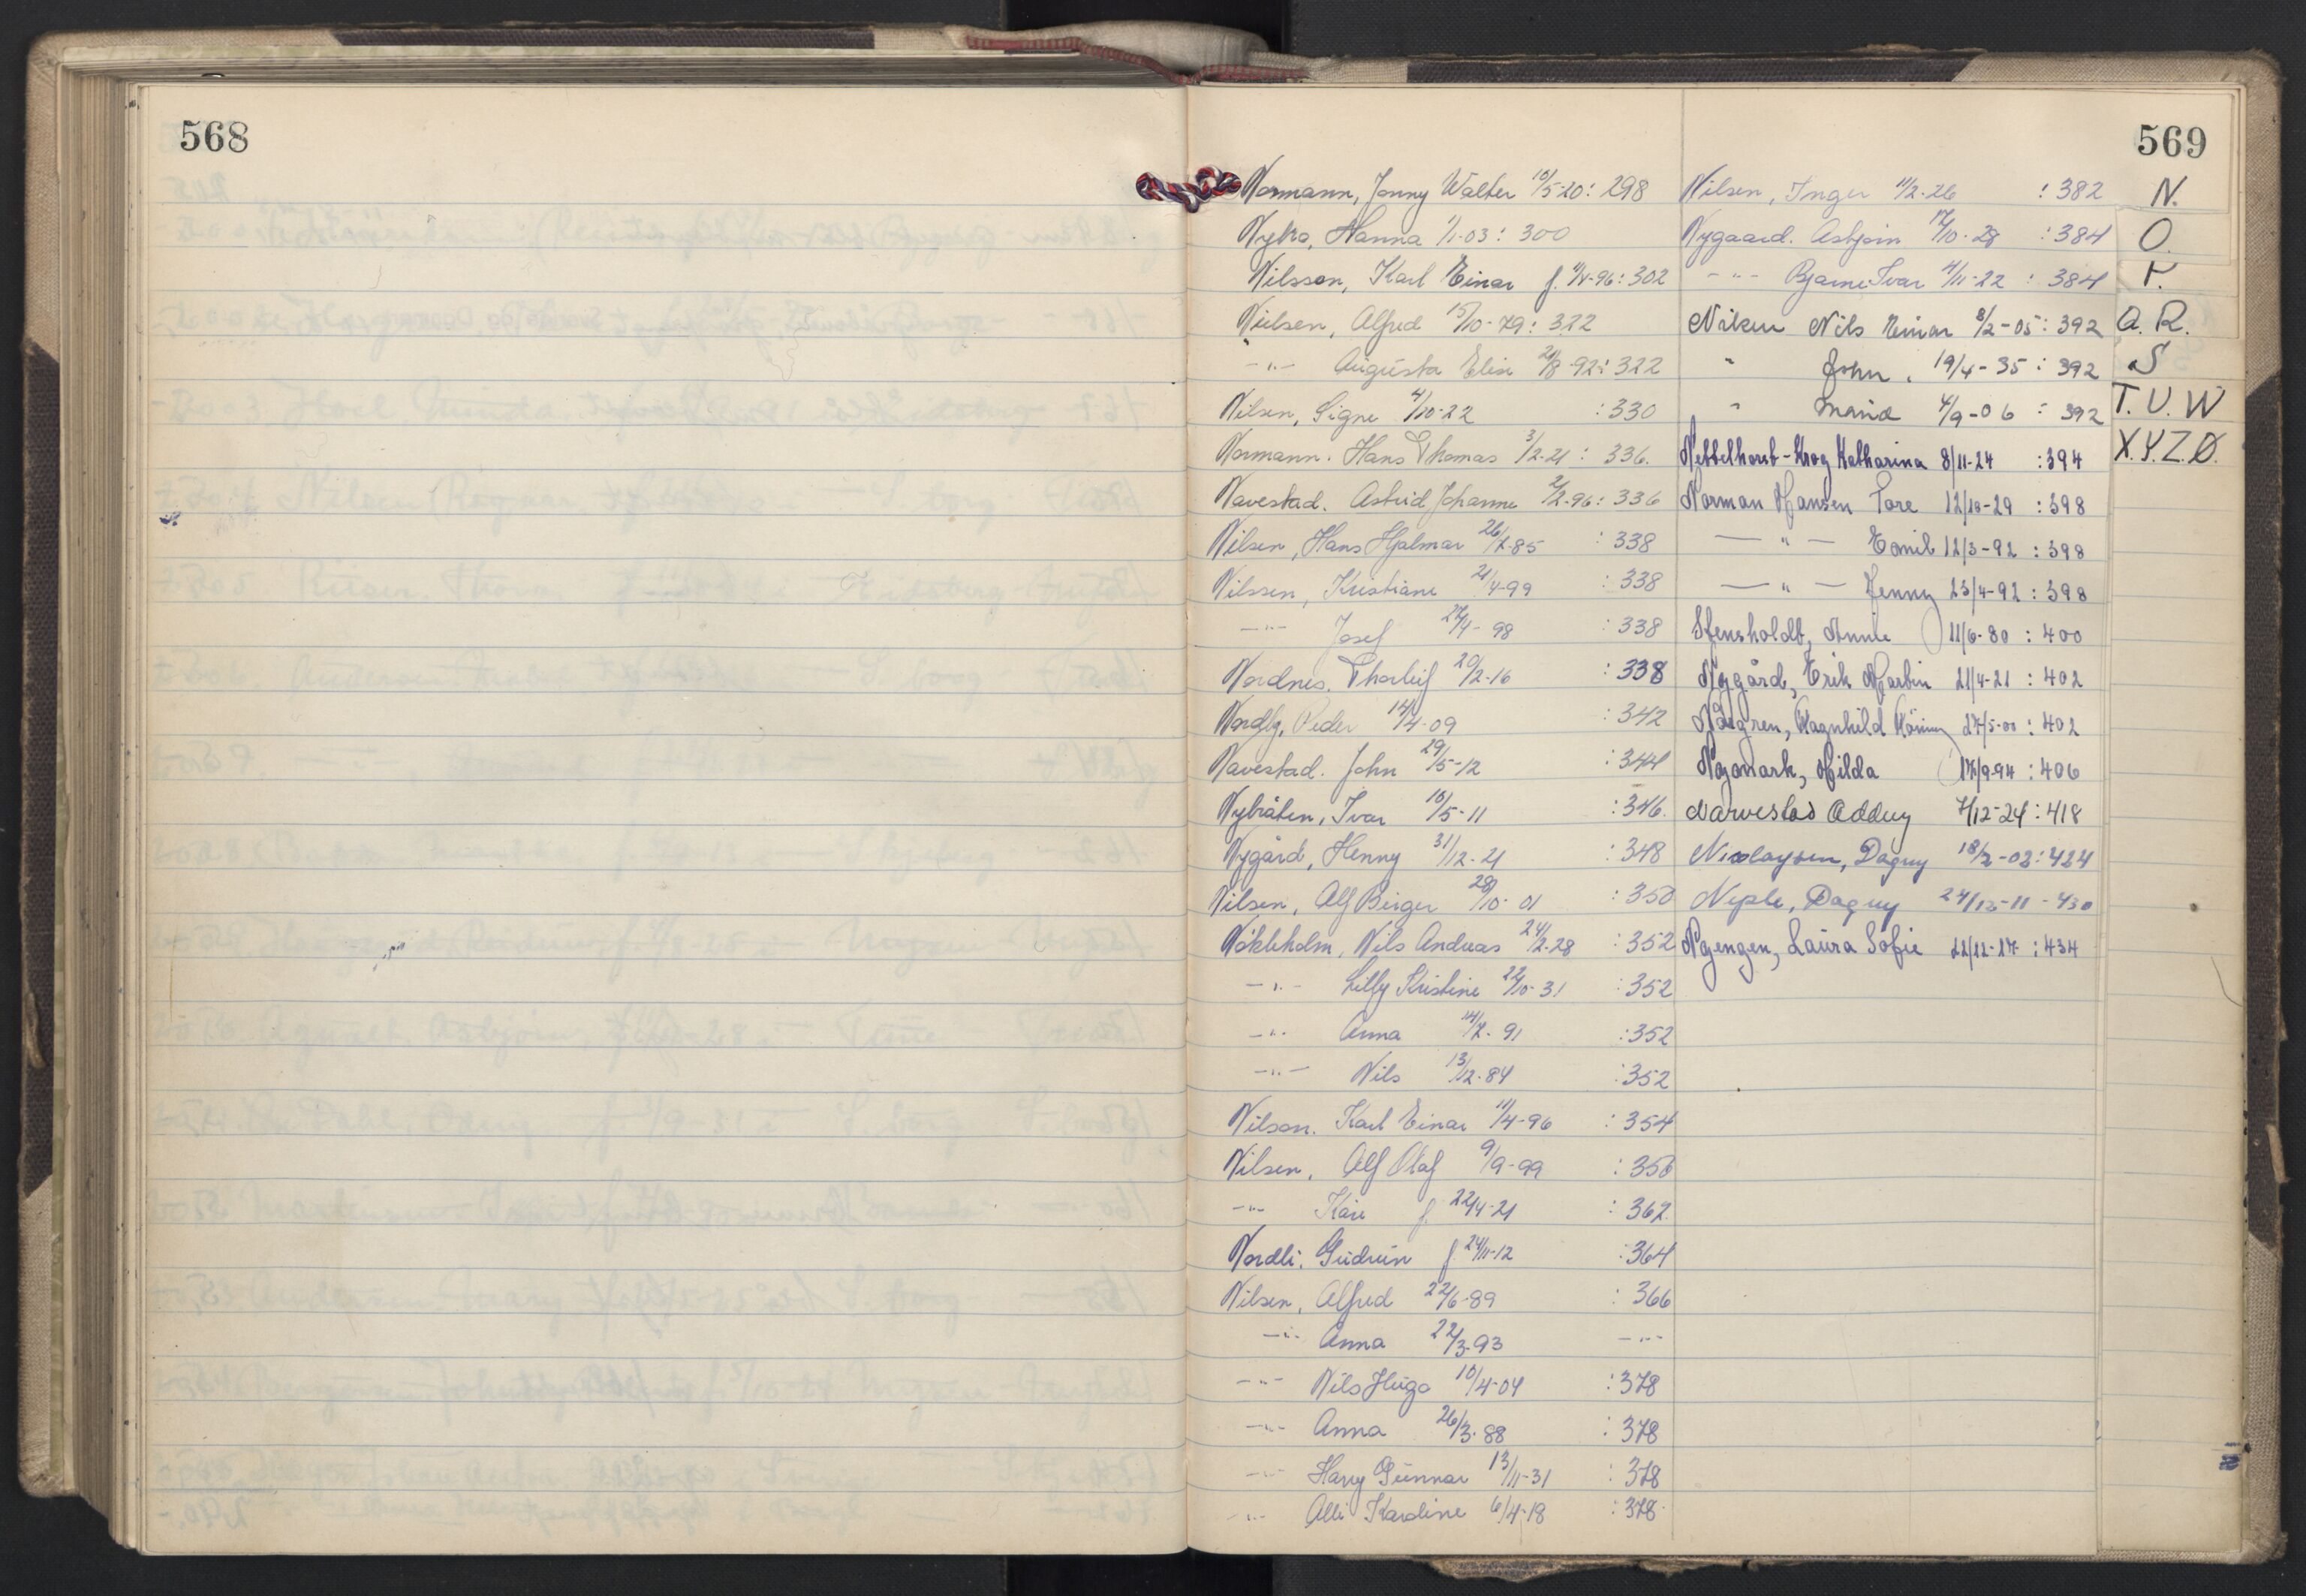 568
569
Normann, Jonny Walter 10/5-20: 298
Nybro, Hanna 1/1-03: 300
Nilsson, Karl Einar f. 11/4-96: 302
Nielsen, Alfred 15/10-79: 322
-"- Augusta Elise 21/8-92: 322
Nilsen, Signe 4/10-22 : 330
Normann. Hans Thomas 3/2-21: 336.
Navestad. Astrid Johanne 2/2-96: 336
Nilsen, Hans Hjalmar 26/7-85 : 338
Nilssen, Kristiane 21/4-99 : 338
-"- Josef 27/4-98 : 338
Nordnes. Thorleif 20/2-16 : 338
Nordly, Peder 14/4-09 : 342
Navestad. John 29/5-12 : 344
Nybråten, Ivar 10/5-11 : 346.
Nygård, Henny 31/12-21 : 348
Nilsen, Alf Birger 28/10-01 : 350
Nökleholm, Nils Andreas 24/2-28 : 352
-"- Lilly Kristine 22/10-31 : 352
-"- Anna 14/7-91 : 352
-"- Nils 13/12-84 : 352
Nilson. Karl Einar 11/4-96 : 354
Nilsen, Alf Olaf 9/9-99 : 356
-"- Kåre f. 22/4-21 : 362.
Nordli. Gudrun f 24/11-12 : 364
Nilsen, Alfred 22/6-89 : 366
-"- Anna 22/3-93 -"-
-"- Nils Hugo 10/4-04 : 378
-"- Anna 26/3-88 : 378
-"- Harry Gunnar 13/11-31 : 378
-"- Alli Karoline 6/4-18 : 378
Nilsen, Inger 11/2-26 : 382
Nygaard. Asbjørn 17/10-28 : 384
-"- Bjarne Ivar 4/11-22 : 384
Nilsen Nils Einar 8/2-05: 392
" John. 19/4-35: 392
" Maria 4/9-06: 392
Nebbelhorst-Krog Katharina 8/11-24 : 394
Norman Hansen Tore 12/10-29 : 398
-"- Emil 12/3-92 : 398
-"- Jenny 23/4-92 : 398
Stensholdt, Annie 11/6-80 : 400
Nygård, Erik Martin 21/4-21 : 402
Norgren, Ragnhild 27/5-00 : 402
Nymark, Hilda 17/9-94 : 406
Narvestad Oddny 7/12-24: 418
Nicolaysen, Dagny 18/2-02: 424
Neple, Dagny 24/12-11 - 430
Nyengen, Laura Sofie 22/12-27 : 434
N.
O.
P.
Q. R.
S
T. U. W
X. Y. Z. Ø.